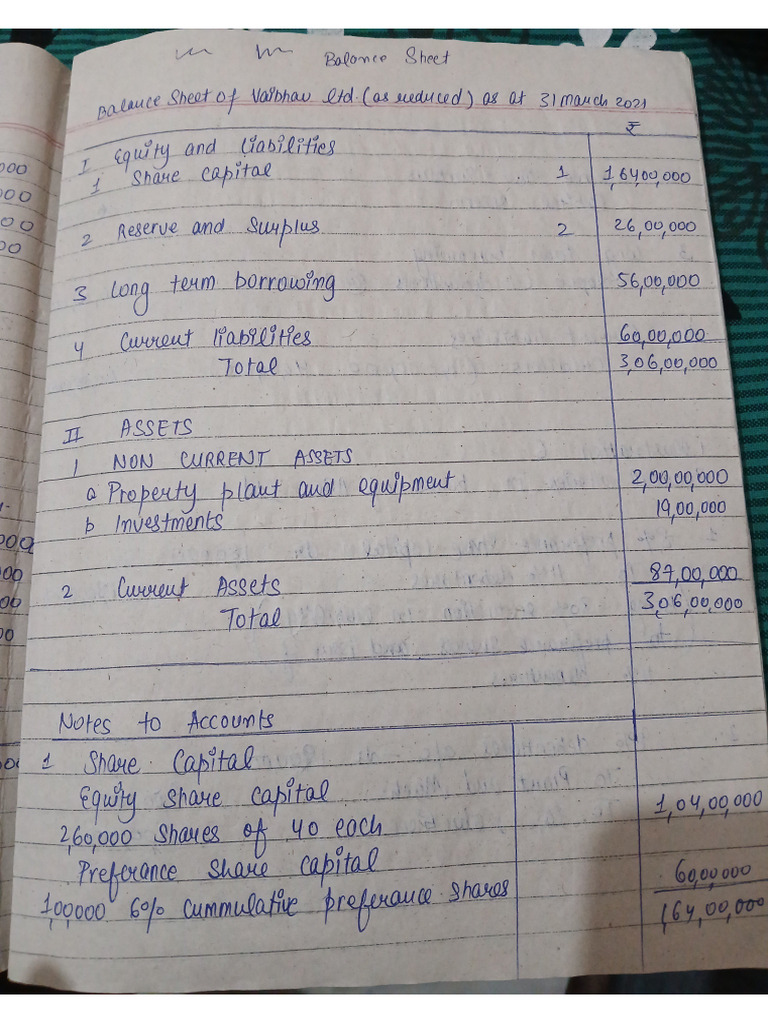 Balance Sheet
Balance Sheet of Vaibhav ltd. (as reduced) as at 31 march 2021
₹
I Equity and liabilities
1 Share capital 1 1,6400,000
2 Reserve and Surplus 2 26,00,000
3 long term borrowing 56,00,000
4 Current liabilities 60,00,000
Total 3,06,00,000
II ASSETS
1 NON CURRENT ASSETS
a Property plant and equipment 2,00,00,000
b Investments 19,00,000
2 Current Assets 87,00,000
Total 3,06,00,000
Notes to Accounts
1 Share Capital
Equity share capital
2,60,000 shares of 40 each 1,04,00,000
Preferance Share capital
1,00000 6% cummulative preferance shares 60,00,000
1,64,00,000